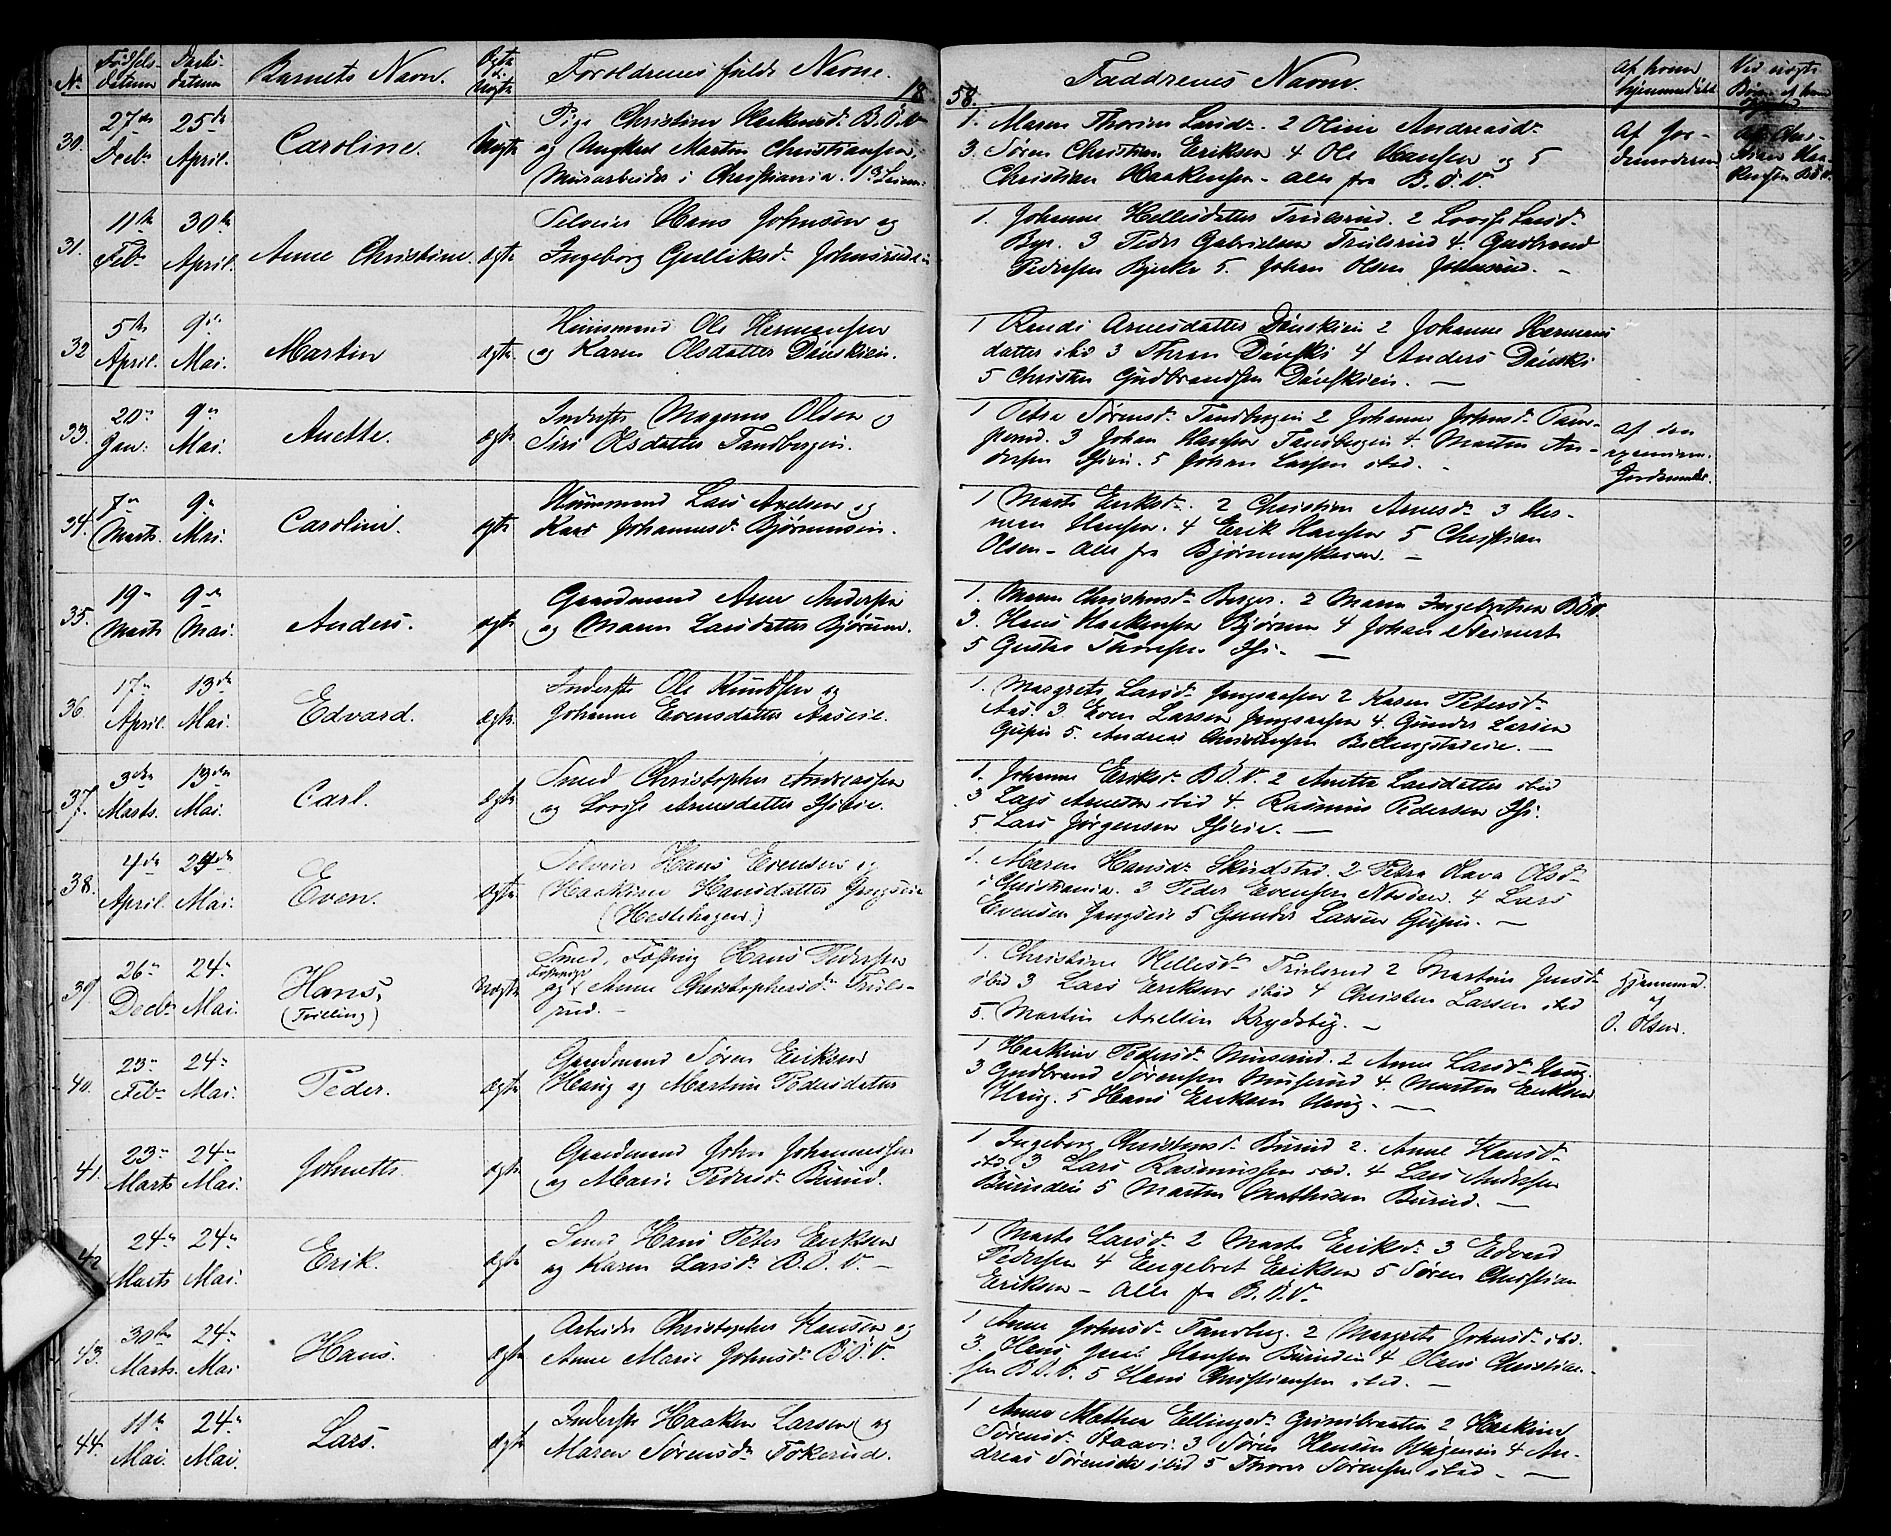 No Fødsels- datum Daabs- datum Barnets Navn. Ægte el. Uægte Forældrenes fulde Navne. 18
58. Faddrenes Navne. af hvem hjemmedøbt Ved uægte Børn af hvem
30. 27de Decbr 25de April. Caroline. Uægte
Pige Christine Haakensdr. B. Ö. V.
og Ungkarl Martin Christiansen,
Murarbeider i Christiania. 1ste Leierm:
1. Maren Thorine Larsdr. 2 Oline Andreasdr.
3. Søren Christian Eriksen 4 Ole Hansen og 5
Christian Haakensen - alle fra B. Ö. V.
Af Jor-
demoderen
31. 11te Feb. 30te April. Anne Christine. ægte
Selveier Hans Johnsen og
Ingeborg Gulliksdr. Johnsrudeie
1. Johanne Hellesdatter Trulsrud. 2 Lovise Larsdr.
Bye. 3 Peder Gabrielsen Trulsrud 4. Gudbrand
Pedersen Bjerke 5. Johan Olsen Johnsrud. -
32 5te April. 9de Mai. Martin ægte.
Huusmand Ole Hermansen
og Karen Olsdatter Dönskiein.
1 Randi Arnesdatter Dönskiein 2 Johanne Hermans
datter ibid 3 Thran Dönski 4 Anders Dönski
5 Christen Gudbrandsen Dönskiein. -
33. 20n Jan: 9n Mai. Anette. ægte
Inderste Magnus Olsen og
Siri Olsdatter Tandbergeie.
1 Petra Sørensd. Tandbergeie 2 Johanne Johnsd.
3 Johan Hansen Tandbergeie 4. Martin An-
dersen 5 Johan Larsen ibid. -
Af den
examinern.
Jordemoder.
34. 7n Marts. 9n Mai. Caroline. ægte
Huusmand Lars Axelsen og
Kari Johannesd. Bjørumseie.
1 Marte Eriksd. 2 Christine Arnesd. 3 Her-
man Hansen. 4 Erik Hansen 5 Christian
Olsen - alle fra
35. 19n Marts 9n Mai. Anders. ægte
Gaardmand Arne Andersen
og Maren Larsdatter Bjørum.
1. Maren Berger. 2 Maren Ingebretsen B.Ö.V.
3. Hans Haakensen Bjørum 4 Johan Steinert
5 Gustav Thoresen Isi. -
36 17n April. 13de Mai. Edvard. ægte.
Inderste Ole Knudsen og
Johanne Evensdatter Aaseie.
1. Margrete Larsd. 2 Karen Petersd.
Aas. 3. Even Larsen 4. Gunder Larsen
5. Andreas Christensen Billingstadeie. -
37. 3den Marts. 13den Mai. Carl. ægte
Smed Christopher Andreassen
og Lovise Arnesdatter Isieie.
1. Johanne Eriksd. B.Ö.V. 2 Anette Larsdatter ibid
3 Lars Arnesen ibid 4. Rasmus Pedersen Isi.
5 Lars Jørgensen Isieie. -
38. 4de April. 24de Mai. Even. ægte.
Selveier Hans Evensen og
Haakine Hansdatter
(Hestehagen)
1. Maren Hansd. Skudstad. 2 Petra Olava Olsd.
i Christiania. 3 Peder Evensen 4 Lars
Evensen 5 Gunder Larsen
39 26n Decbr. 24n Mai. Hans, (Tvilling) Uægte
Smed, Fæsting Hans Pedersen
og Fæstepige Anne Christophersd. Truls-
rud. -
1. Christine Hellesd. Trulsrud 2 Martine Jensd.
ibid 3 Lars Eriksen ibid 4 Christen Larsen ibid
5. Martin Axelsen Krydsby. -
hjemmed.
af
O. Olsen.
40. 23n Feb. 24n Mai. Peder. ægte
Gaardmand Søren Eriksen
Haug og Martine Pedersdatter
1 Haakine Pedersd. Muserud. 2 Anne Larsd. Haug.
3 Gudbrand Sørensen Muserud 4. Martin Eriksen
Haug. 5 Hans Eriksen Haug. -
41. 23n Marts 24n Mai. Johnette. ægte
Gaardmand John Johannessen
og Marie Pedersd. Burud.
1 Ingeborg Christensd. Burud 2. Anne Hansd.
ibid. 3 Lars Rasmussen ibd. 4 Lars Andersen
Burudeie 5 Martin Mathisen Burud. -
42 24n Marts 24n Mai. Erik. ægte
Smed Hans Peter Eriksen
og Karen Larsd. B.Ö.V. -
1 Marte Larsd. 2 Marte Eriksd. 3 Edvard
Pedersen 4 Engebret Eriksen 5 Søren Christian
Eriksen - alle fra B.Ö.V.
43. 30te Marts. 24n Mai Hans. ægte
Arbeider Christopher Hansen og
Anne Marie Johnsd. B.Ö.V.
1 Anne Johnsd. Tandberg. 2 Margrete Johnsd. ibd.
3. Hans Hansen Burudeie 4 Hans Christian-
sen B.Ö.V. 5 Hans Christiansen ibid. -
44. 11te Mai. 24n Mai. Lars. ægte
Inderste Haaken Larsen og
Maren Sørensd. Fokerud.
1 Anne Mathea Ellingsd. 2 Haakine
Sørensd. Staavi. 3 Søren Hansen 4 An-
dreas Sørensen ibid 5 Thorer Sørensen ibid - -